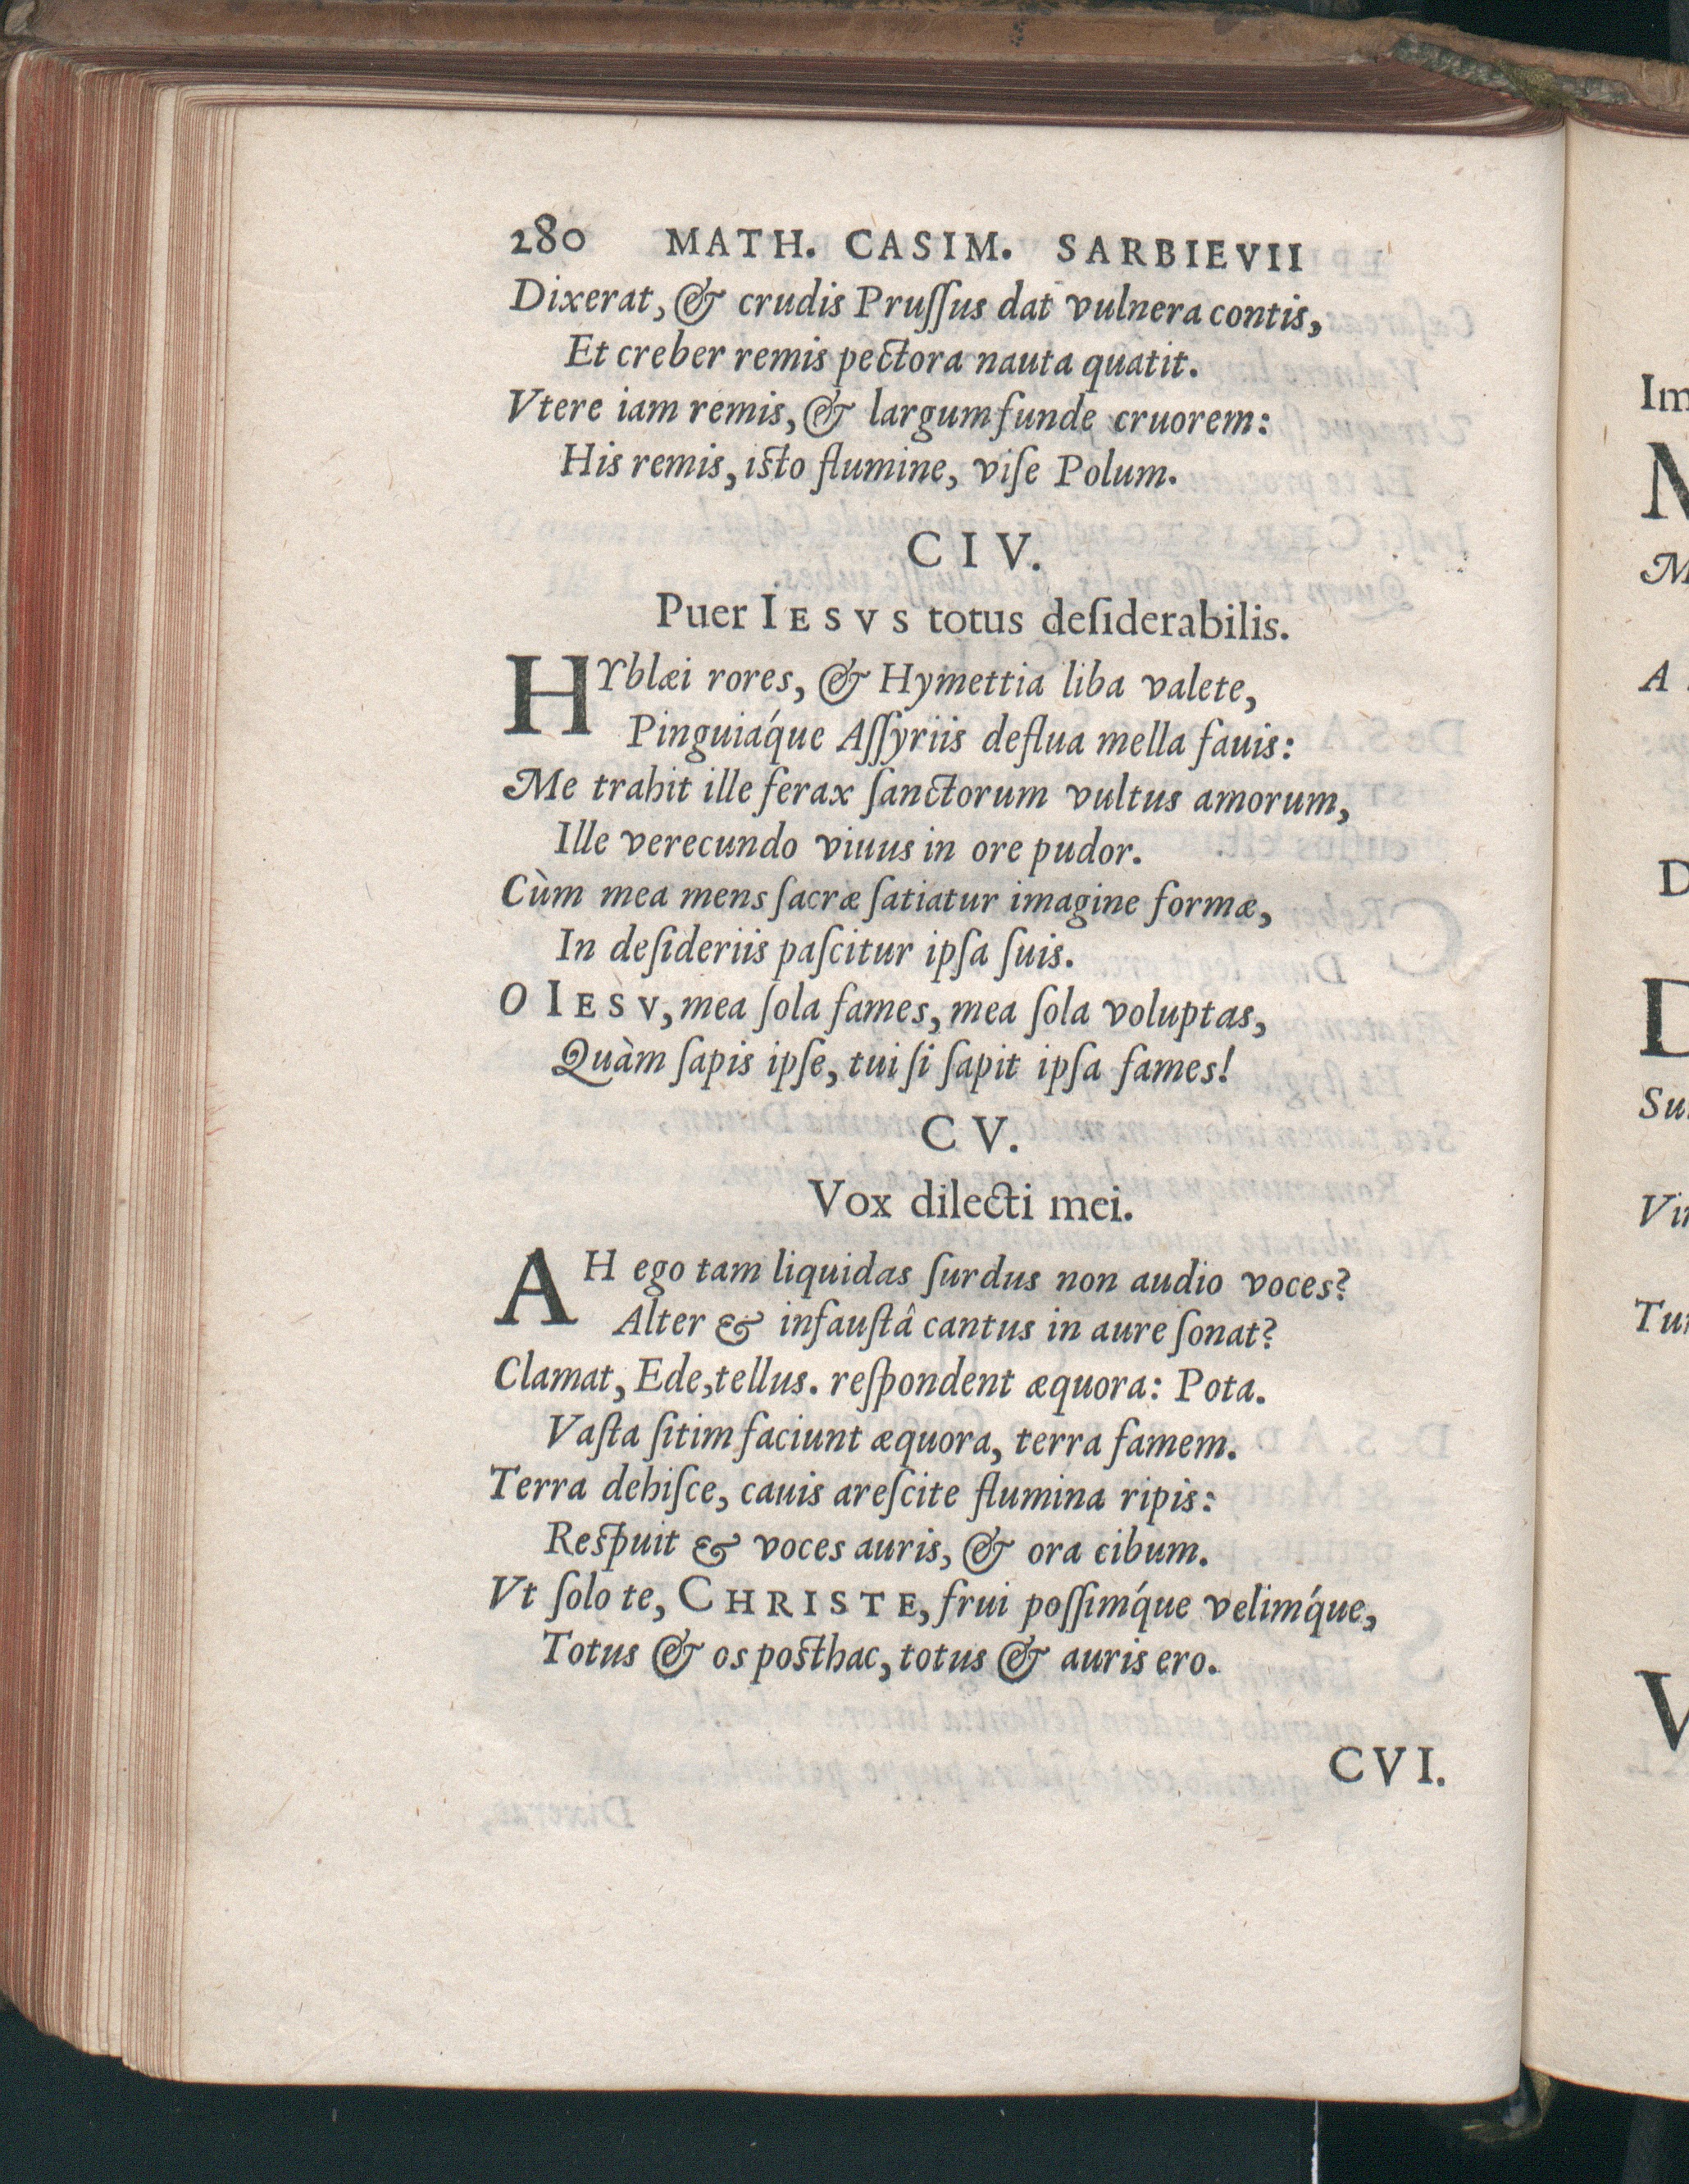 280 MATH. CASIM. SARBIEVII
Dixerat, & crudis Pruſſus dat vulnera contis,
Et creber remis pectora nauta quatit.
Vtere iam remis, & largum funde cruorem:
His remis, isto flumine, viſe Polum.
CIV.
Puer IESVS totus deſiderabilis.
HYblæi rores, & Hymettia liba valete,
Pinguiáque Aſſyriis deflua mella fauis:
Me trahit ille ferax ſanctorum vultus amorum,
Ille verecundo viuus in ore pudor.
Cùm mea mens ſacræ ſatiatur imagine formæ,
In deſideriis paſcitur ipſa ſuis.
O IESV, mea ſola fames, mea ſola voluptas,
Quàm ſapis ipſe, tui ſi ſapit ipſa fames!
CV.
Vox dilecti mei.
AH ego tam liquidas ſurdus non audio voces?
Alter & infauſtâ cantus in aure ſonat?
Clamat, Ede, tellus. reſpondent æquora: Pota.
Vaſta ſitim faciunt æquora, terra famem.
Terra dehiſce, cauis areſcite flumina ripis:
Respuit & voces auris, & ora cibum.
Vt ſolo te, CHRISTE, frui poſſimq́ue velimq́ue,
Totus & os posthac, totus & auris ero.
CVI.
Im
M
A
D
D
Su
Vi
Tu
V